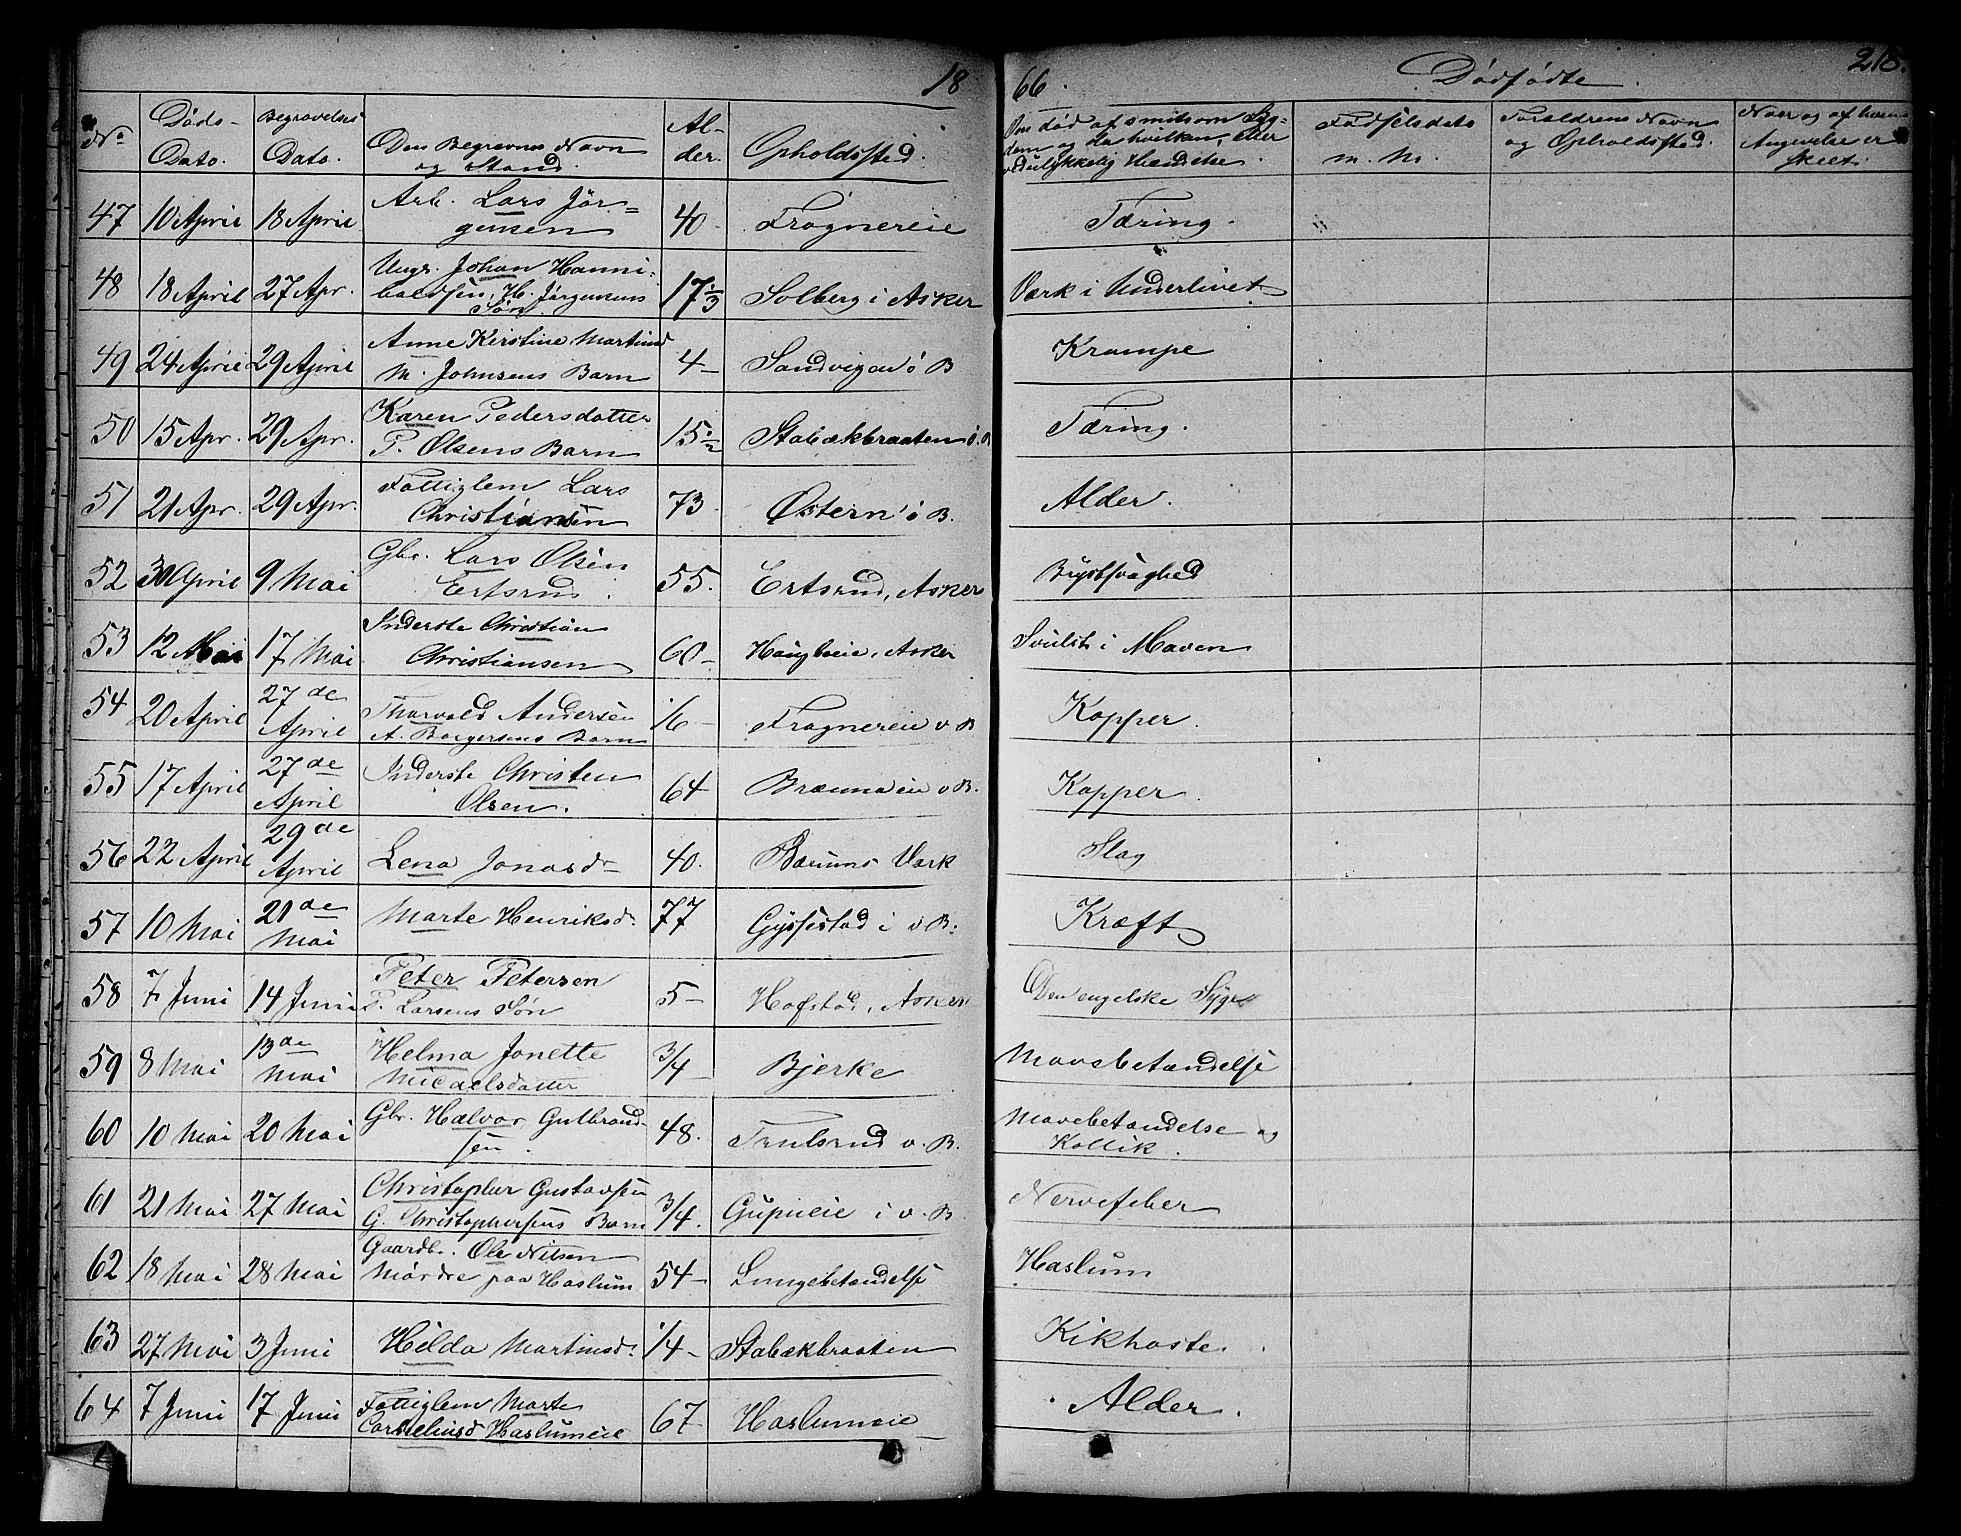 18 66. Dødfødte. 218.
No. Døds-Dato. Begravelses Dato. Den Begravnes Navn og Stand. Al-der. Opholdssted. Om død af smitsom Syg-dom og da hvilken, eller ved ulykkelig Hændelse. Fødselsdato m. M. Forældrenes Navn og Opholdssted. Naar og af hvem Angivelse er skeet.
47 10 April 18 April Arb. Lars Jør-gensen 40 Frognereie Tæring.
48 18 April 27 Apr. Ungr. Johan Hanni-baldsen, H. Jørgensens Søn 17 1/3 Solberg i Asker Værk i Underlivet
49 24 April 29 April Anne Kirstine Martinsd M. Johnsens Barn 4 Sandvigen ø B Krampe
50 15 Apr. 29 Apr. Karen Pedersdatter P. Olsens Barn 15 1/2 Stabækbraaten ø. B Tæring.
51 21 Apr. 29 Apr. Fattiglem Lars Christiansen 73 Østern ø B. Alder.
52 30 April 9 Mai Gbr. Lars Olsen Ertsrud. 55. Ertsrud, Asker Brystsvaghed
53 12 Mai 17 Mai Inderste Christian Christiansen 60 Haugbeie, Asker Svulst i Maven
54 20 April 27de April Thorvald Andersen A. Borgersens Barn 16 Frognereie v B Kopper.
55 17 April 27de April Inderste Christen Olsen. 64 Brænnaeie v B. Kopper.
56 22 April 29de April Lena Jonasdr 40. Bærums Værk Slag
57 10 Mai 21de Mai Marte Henriksdr 77 Gjøssestad i v B. Kræft
58 7 Juni 14 Juni Peter Petersen P. Larsens Søn 5 Hofstad, Asker Den engelske Syge
59 8 Mai 13de Mai Helma Jonette Micaelsdatter 3/4 Bjerke Mavebetændelse
60 10 Mai 20 Mai Gbr. Halvor Gulbrand-sen. 48. Trulsrud v. B. Mavebetændelse og Kollik.
61 21 Mai 27 Mai Christopher Gustavsen G. Christophersens Barn 3/4. Gupueie i v. B. Nervefeber
62 18 Mai 28 Mai Gaardbr. Ole Nilsen Mørdre paa Haslum 54 Lungebetændelse Haslum
63 27 Mai 3 Juni Hilda Martinsdr 1/4 Stabækbraaten Kikhoste.
64 7 Juni 17 Juni Fattiglem Marte Corneliusd Haslumeie 67 Haslumeie Alder.